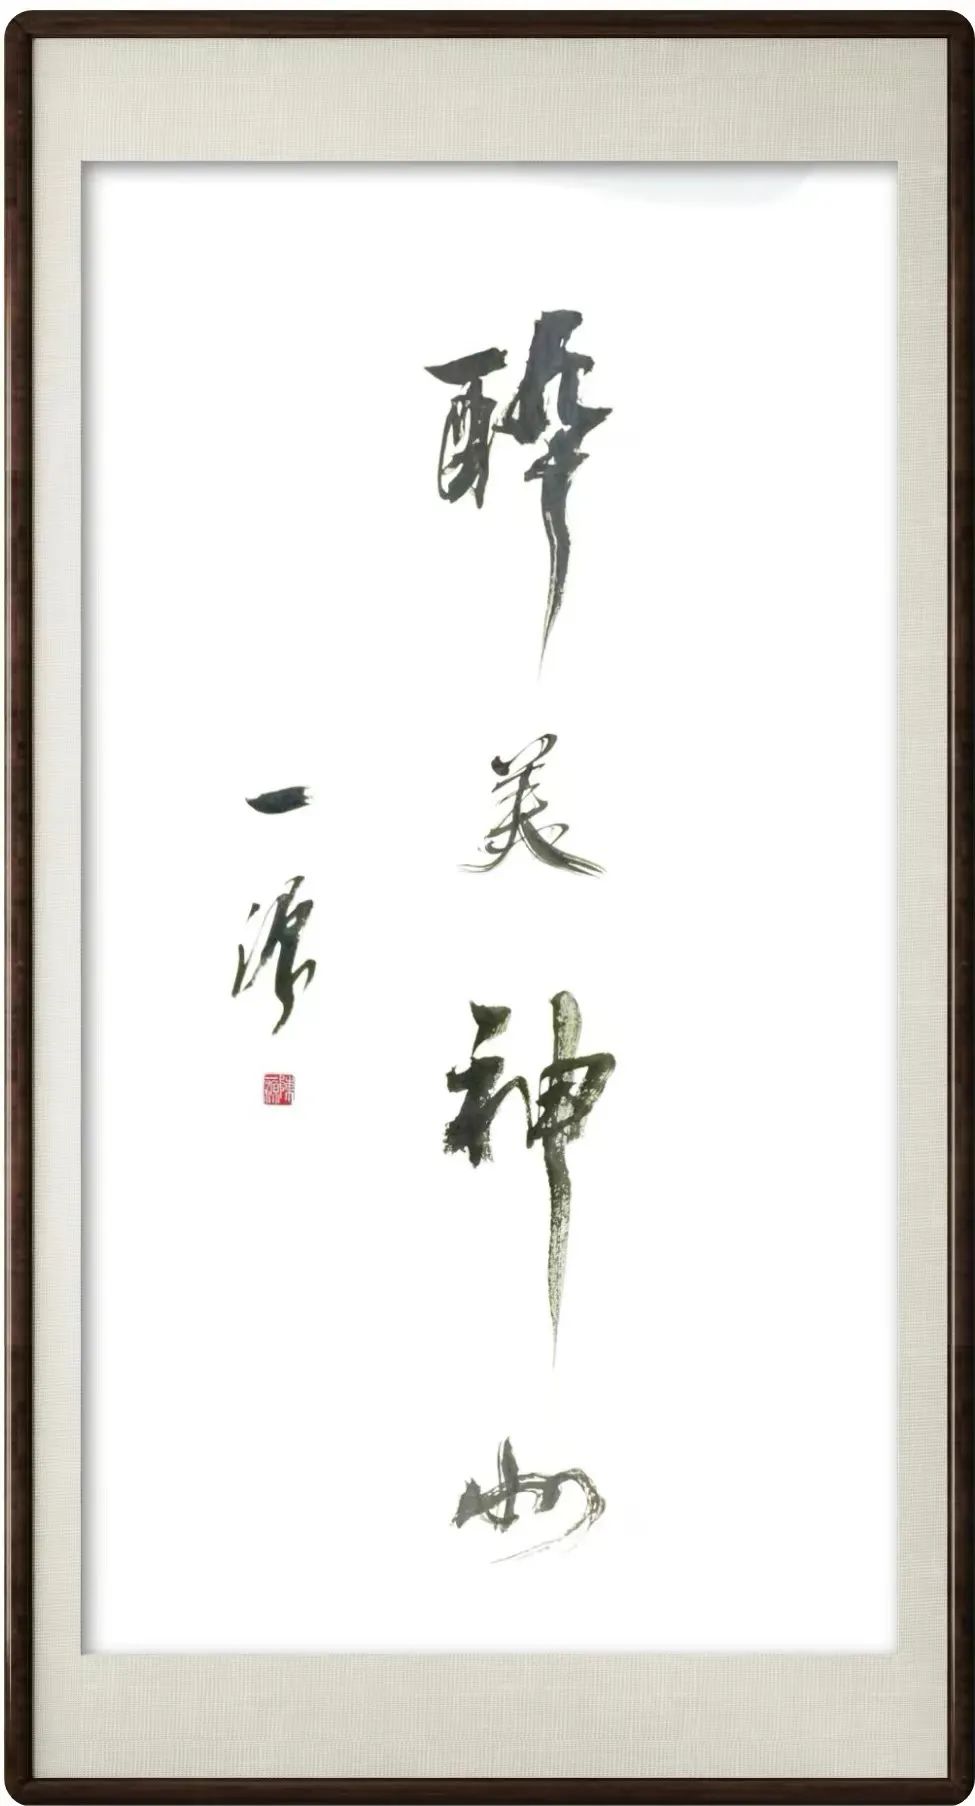 醉美神州
一源